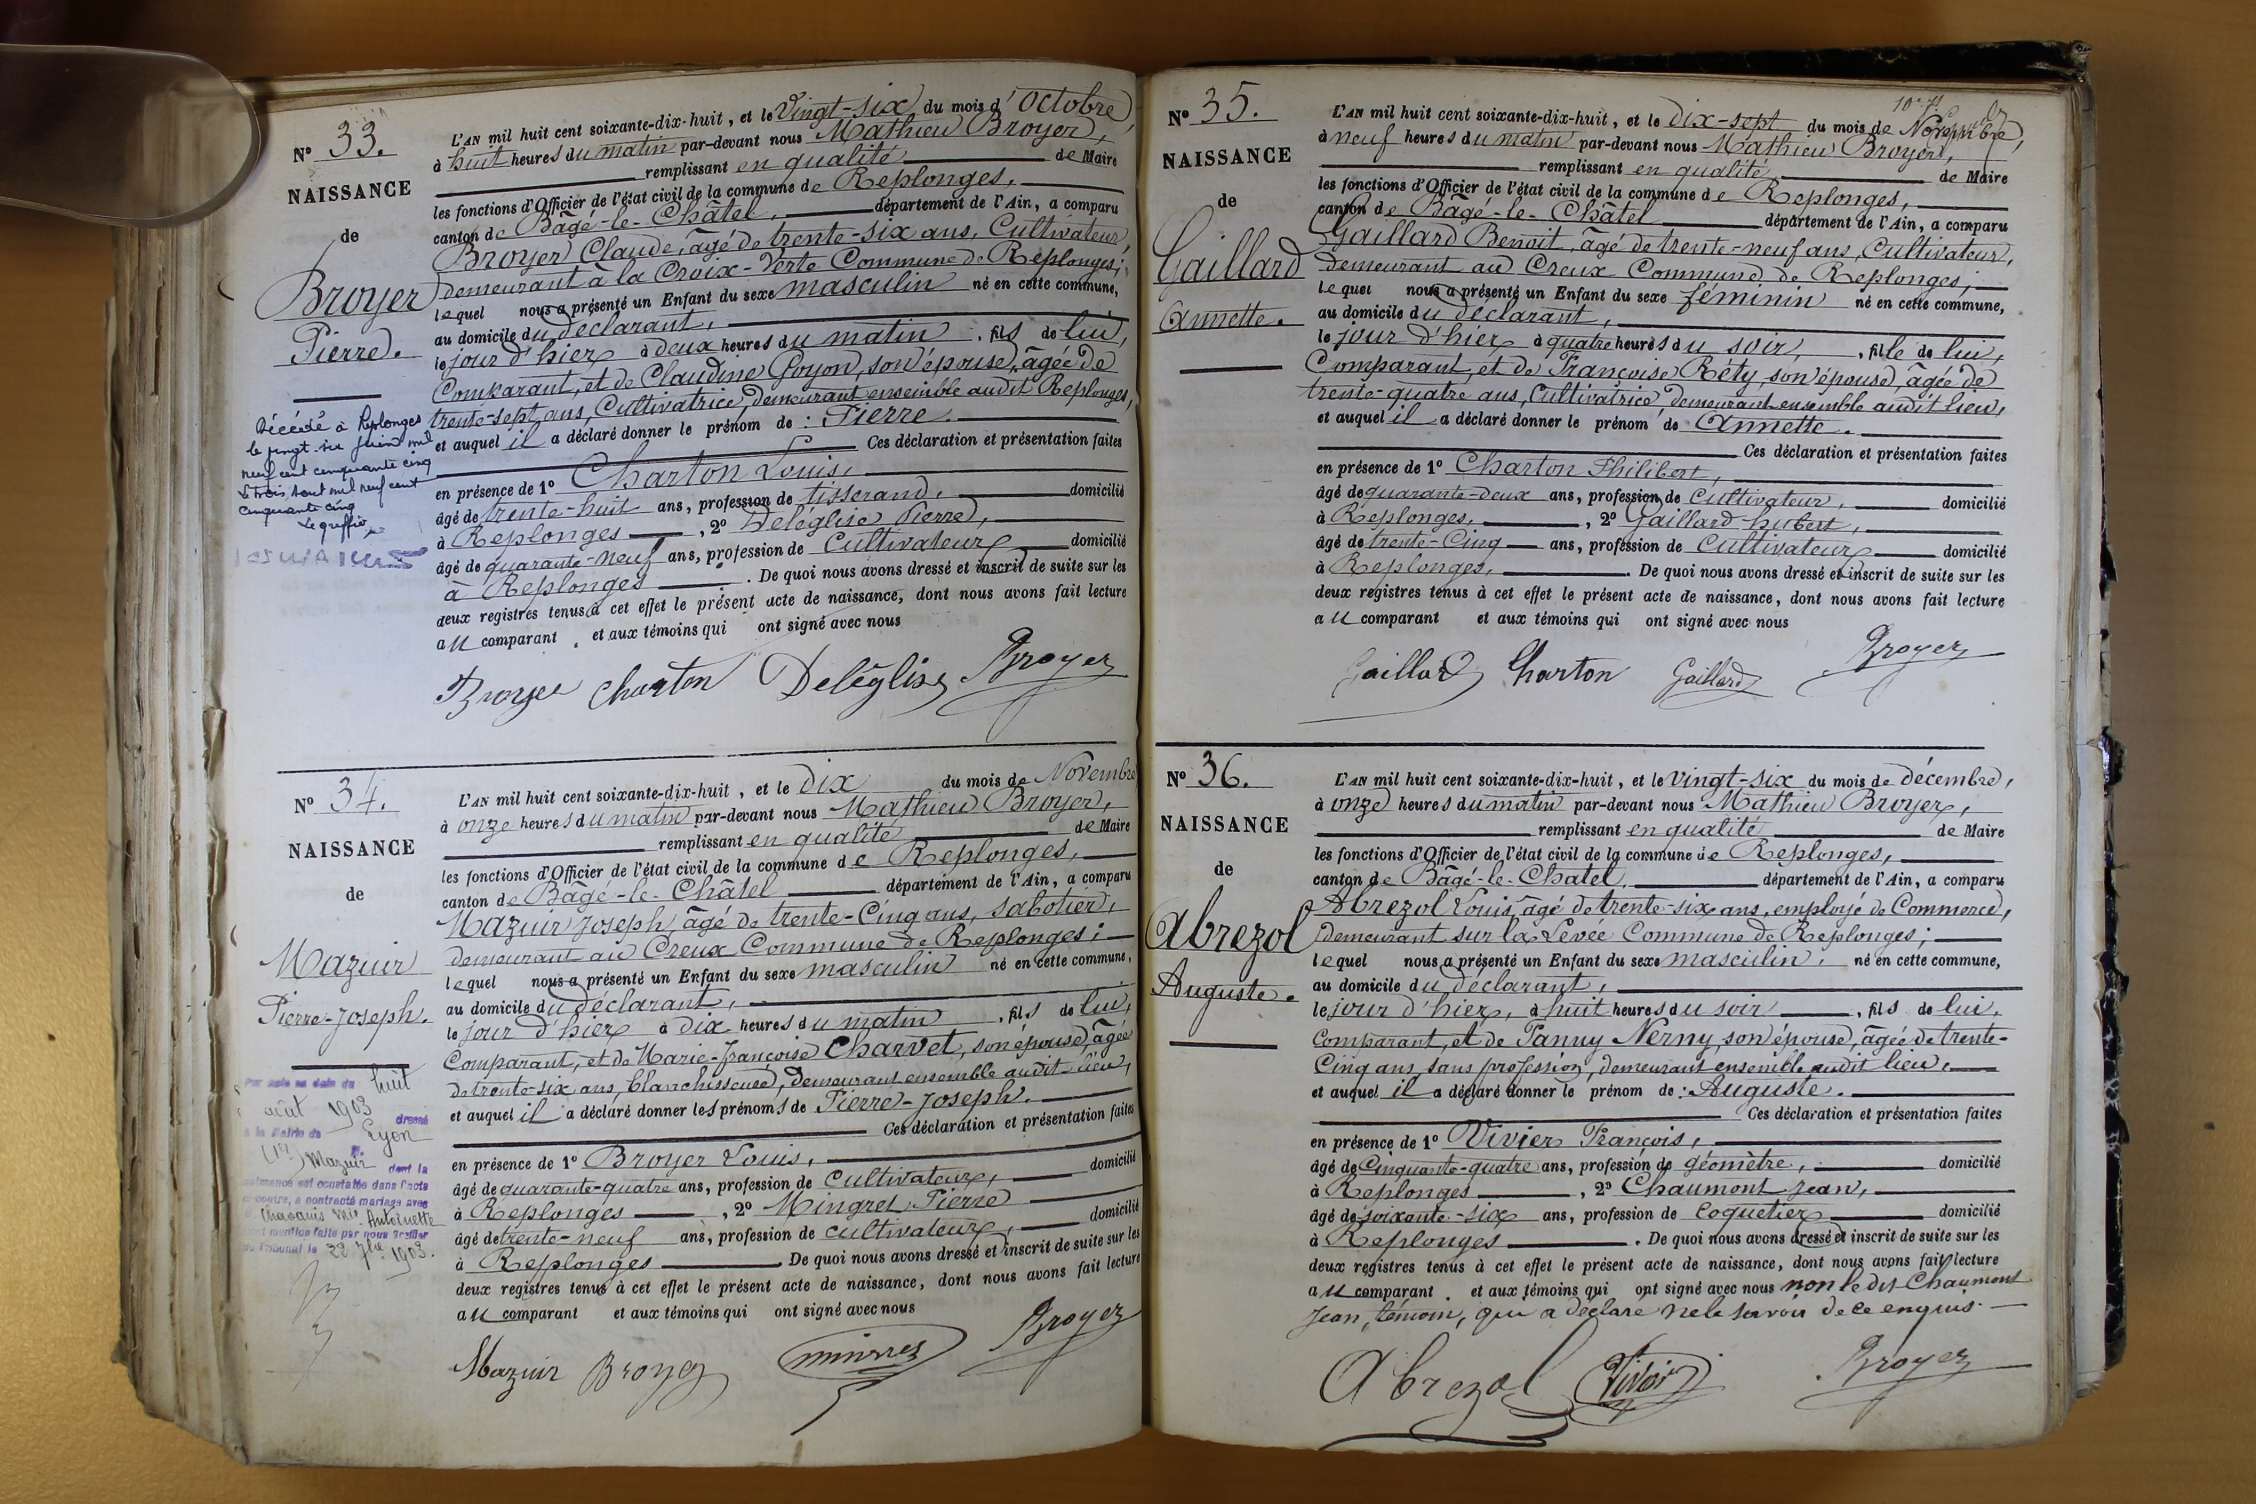 N° 33.
NAISSANCE
de
Broyer
Pierre.
Décédé à Replonges
le vingt six Juin mil
neuf cent cinquante cinq
Le trois Aout mil neuf cent
cinquante cinq
Le greffier
L'AN mil huit cent soixante-dix-huit, et le Vingt-six du mois d'Octobre,
à huit heures du matin par-devant nous Mathieu Broyer,
remplissant en qualité de Maire
les fonctions d'Officier de l'état civil de la commune de Replonges,
canton de Bâgé-le-Châtel, département de l'Ain, a comparu
Broyer Claude, âgé de trente-six ans, Cultivateur,
demeurant à la Croix-Verte Commune de Replonges;
lequel nous a présenté un Enfant du sexe masculin né en cette commune,
au domicile du déclarant,
le jour d'hier à deux heures du matin, fils de lui,
Comparant, et de Claudine Goyon, son épouse, âgée de
trente-sept ans, Cultivatrice, demeurant ensemble audit Replonges,
et auquel il a déclaré donner le prénom de : Pierre.
Ces déclaration et présentation faites
en présence de 1° Charton Louis,
âgé de trente-huit ans, profession de tisserand, domicilié
à Replonges, 2° Deléglise Pierre,
âgé de quarante-neuf ans, profession de Cultivateur domicilié
à Replonges. De quoi nous avons dressé et inscrit de suite sur les
deux registres tenus à cet effet le présent acte de naissance, dont nous avons fait lecture
au comparant et aux témoins qui ont signé avec nous
Broyer Charton Deléglise Broyer
N° 34.
NAISSANCE
de
Mazuir
Pierre-Joseph.
Par acte en date du huit
août 1903 dressé
à la Mairie de Lyon
(1er) Mazuir dont la
naissance est constatée dans l'acte
ci-contre, a contracté mariage avec
Mie Antoinette
mention faite par nous Greffier
du Tribunal le 22 7bre 1903.
L'AN mil huit cent soixante-dix-huit, et le dix du mois de Novembre
à onze heures du matin par-devant nous Mathieu Broyer,
remplissant en qualité de Maire
les fonctions d'Officier de l'état civil de la commune de Replonges,
canton de Bâgé-le-Châtel département de l'Ain, a comparu
Mazuir Joseph, âgé de trente-Cinq ans, sabotier,
demeurant au Creux Commune de Replonges;
lequel nous a présenté un Enfant du sexe masculin né en cette commune,
au domicile du déclarant,
le jour d'hier à dix heures du matin, fils de lui,
Comparant, et de Marie-françoise Charvet, son épouse, âgée
de trente-six ans, blanchisseuse, demeurant ensemble audit lieu,
et auquel il a déclaré donner les prénoms de Pierre-Joseph.
Ces déclaration et présentation faites
en présence de 1° Broyer Louis,
âgé de quarante-quatre ans, profession de Cultivateur, domicilié
à Replonges, 2° Mingret Pierre
âgé de trente-neuf ans, profession de cultivateur, domicilié
à Replonges De quoi nous avons dressé et inscrit de suite sur les
deux registres tenus à cet effet le présent acte de naissance, dont nous avons fait lecture
au comparant et aux témoins qui ont signé avec nous
Mazuir Broyer Broyer
N° 35.
NAISSANCE
de
Gaillard
Annette.
L'AN mil huit cent soixante-dix-huit, et le dix-sept du mois de Novembre,
à neuf heures du matin par-devant nous Mathieu Broyer,
remplissant en qualité de Maire
les fonctions d'Officier de l'état civil de la commune de Replonges,
canton de Bâgé-le-Châtel département de l'Ain, a comparu
Gaillard Benoit, âgé de trente-neuf ans, Cultivateur,
demeurant au Creux Commune de Replonges;
lequel nous a présenté un Enfant du sexe féminin né en cette commune,
au domicile du déclarant,
le jour d'hier à quatre heures du soir, fille de lui,
Comparant, et de Françoise Réty, son épouse, âgée de
trente-quatre ans, Cultivatrice, demeurant ensemble audit lieu,
et auquel il a déclaré donner le prénom de Annette.
Ces déclaration et présentation faites
en présence de 1° Charton Philibert,
âgé de quarante-deux ans, profession de Cultivateur, domicilié
à Replonges, 2° Gaillard hubert,
âgé de trente-Cinq ans, profession de Cultivateur domicilié
à Replonges, De quoi nous avons dressé et inscrit de suite sur les
deux registres tenus à cet effet le présent acte de naissance, dont nous avons fait lecture
au comparant et aux témoins qui ont signé avec nous
Gaillard Charton Gaillard Broyer
N° 36.
NAISSANCE
de
Abrezol
Auguste.
L'AN mil huit cent soixante-dix-huit, et le vingt-six du mois de décembre,
à onze heures du matin par-devant nous Mathieu Broyer,
remplissant en qualité de Maire
les fonctions d'Officier de l'état civil de la commune de Replonges,
canton de Bâgé-le-Chatel, département de l'Ain, a comparu
Abrezol Louis, âgé de trente-six ans, employé de Commerce,
demeurant sur la Levée Commune de Replonges;
lequel nous a présenté un Enfant du sexe masculin, né en cette commune,
au domicile du déclarant,
le jour d'hier, à huit heures du soir, fils de lui,
Comparant, et de Fanny Nerny, son épouse, âgée de trente-
Cinq ans, sans profession, demeurant ensemble audit lieu,
et auquel il a déclaré donner le prénom de : Auguste.
Ces déclaration et présentation faites
en présence de 1° Vivier François,
âgé de Cinquante-quatre ans, profession de géomètre, domicilié
à Replonges, 2° Chaumont Jean,
âgé de soixante-six ans, profession de coquetier domicilié
à Replonges. De quoi nous avons dressé et inscrit de suite sur les
deux registres tenus à cet effet le présent acte de naissance, dont nous avons fait lecture
au comparant et aux témoins qui ont signé avec nous non le dit Chaumont
Jean, témoin, qui a déclaré ne le savoir de ce enquis.
Abrezol Vivier Broyer